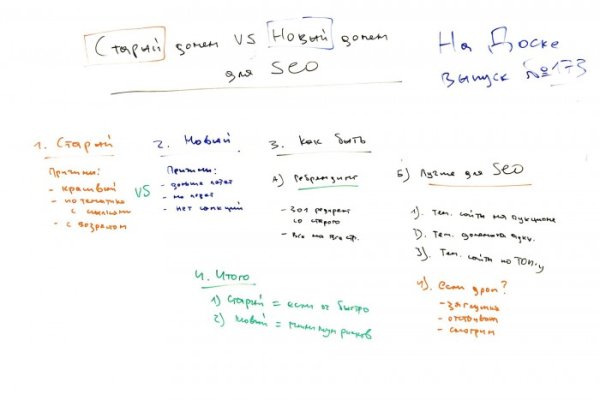 Старый домен VS Новый домен
для SEO
На Доске
выпуск №173
1. Старый
Причины:
- красивый
- по тематике
с ссылками
- с возрастом
VS
2. Новый
Причины:
- дольше
- не
- нет санкций
3. Как быть
А) Ребрендинг
- 301 редирект
со старого
- Все на все стр.
Б) Лучше для SEO
1). Тем. сайты на аукционе
2). Тем. домена
3). Тем. сайты по ТОП-у
4). если дроп?
- загнулись
- отстаивать
- смотрим
4. Итого
1) Старый = если оч быстро
2) Новый = минимум рисков